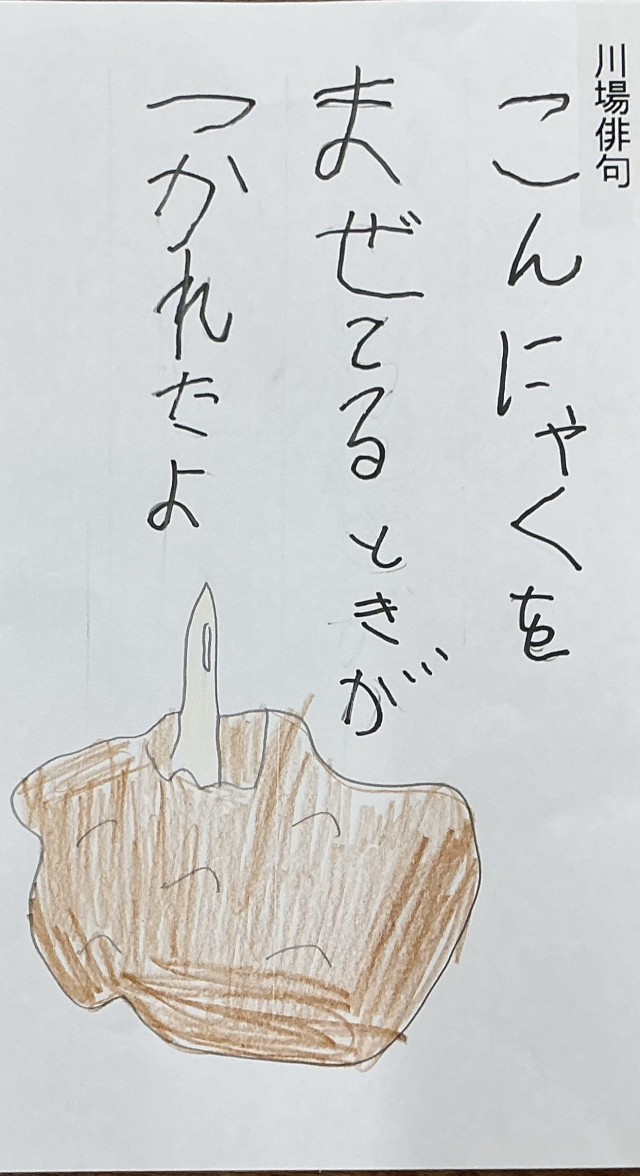 川場俳句
こんにゃくを
まぜてるときが
つかれたよ